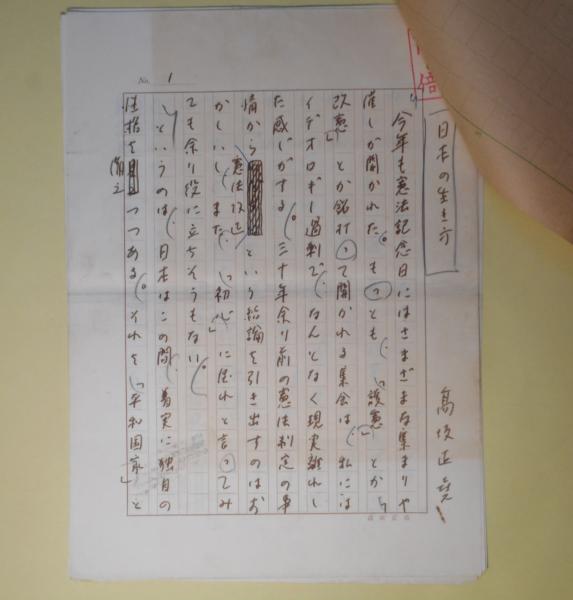 倍
日本の生き方
高坂正堯
No. 1
今年も憲法記念日にはさまざまな集まりや
催しが開かれた。もっとも、「護憲」とか「
改憲」とか銘打って開かれる集会は、私には
イデオロギー過剰で、なんとなく現実離れし
た感じがする。三十年余り前の憲法制定の事
情から憲法改造という結論を引き出すのはお
かしいし、また、「初心」に帰れと言ってみ
ても余り役に立ちそうもない。
というのは、日本はこの間、着実に独自の
性格を備えつつある。それを「平和国家」と